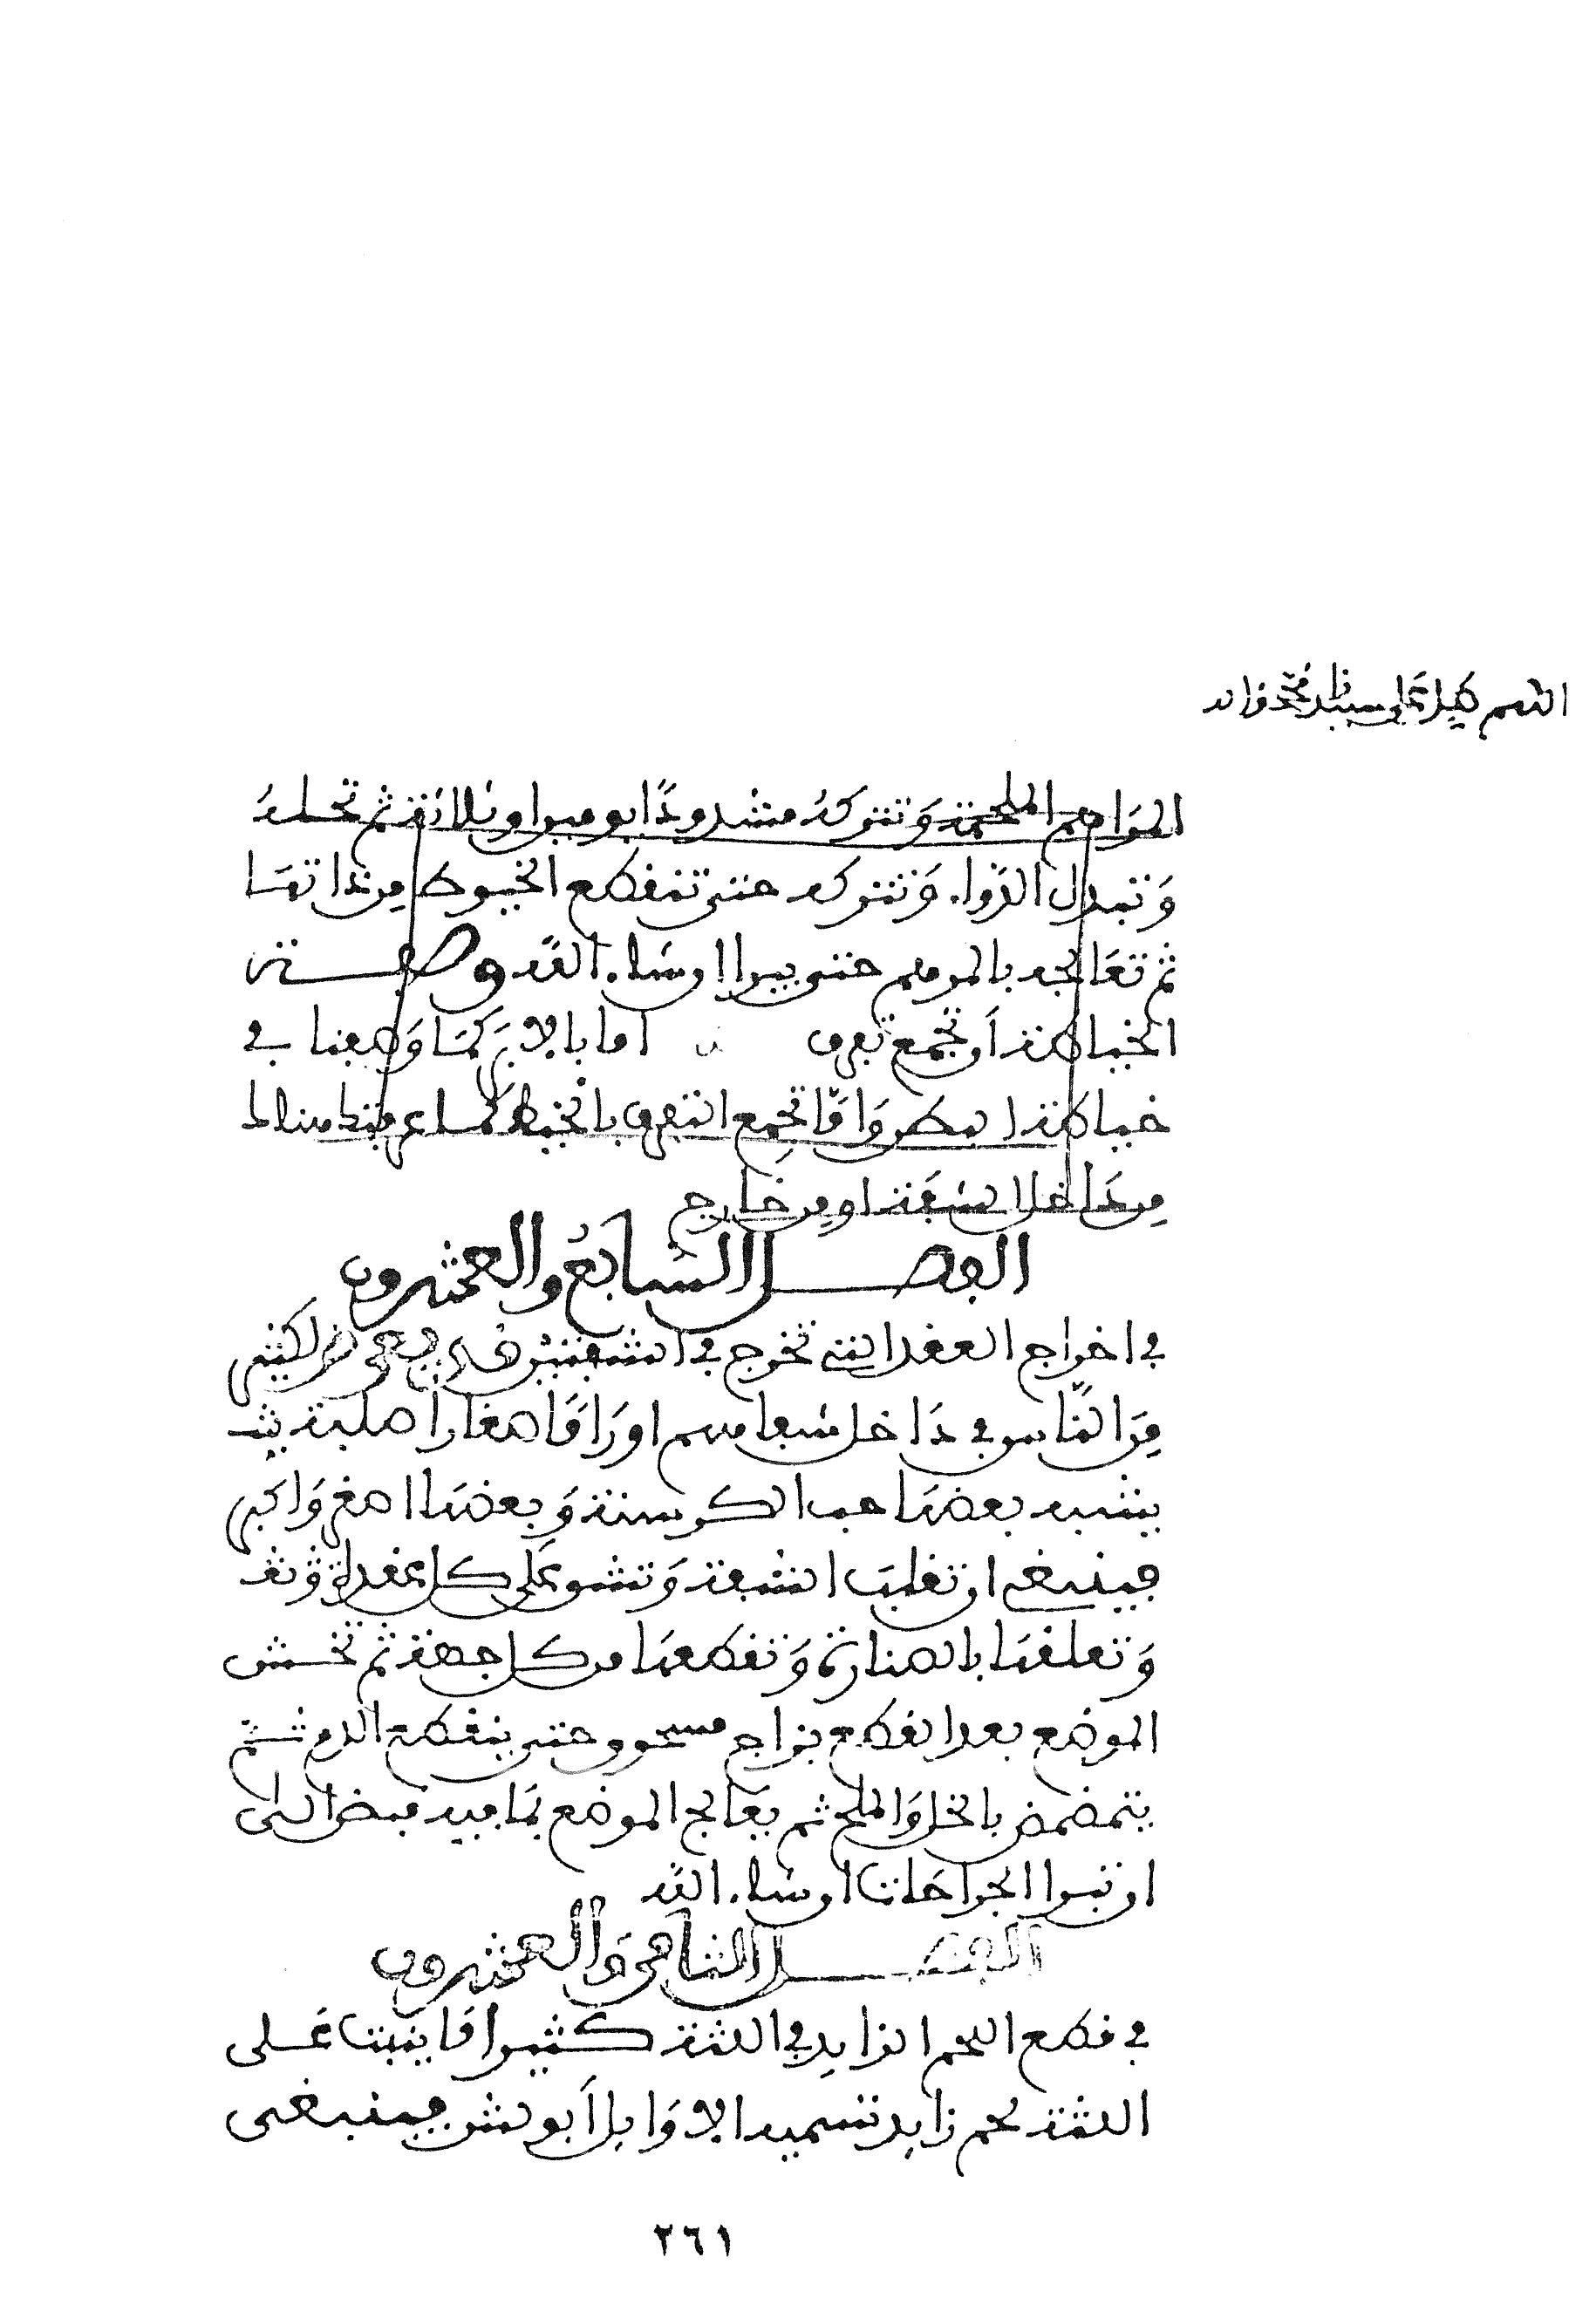 اللهم صل على سيدنا محمد واله
المراهم الملحمة وتتركه مشدودا يومين او ثلاثة ثم تحله
وتبدل الدواء وتتركه حتى تنقطع الخيوط من ذاتها
ثم تعالجه بالمرهم حتى يبرا ان شاء الله وصفة
الخياطة أن تجمع تفرق اما بالابر كما وصفنا في
خياطة البطن واما تجمع التفرق بالخيط كما عرفتك هنالك
من داخل الشفة او من خارج
الفصل السابع والعشرون
في اخراج العقد التي تخرج في الشفتين قد يعرض لكثير
من الناس في داخل شفاههم اورام صغارا صلبة يشـ
يشبه بعضها حب الكرسنة وبعضها اصغر واكبر
فينبغي ان تقلب الشفة وتشق على كل عقدة وتعـ
وتعلقها بالصنارة وتقطعها من كل جهة ثم تحشى
الموضع بعد القطع بزاج مسحوق حتى ينقطع الدم ثم
يتمضمض بالخل والملح ثم يعالج الموضع بما فيه قبض الى
ان تبرا الجراحات ان شاء الله
الفصل الثامن والعشرون
في قطع اللحم الزايد في اللثة كثيرا ما ينبت على
اللثة لحم زايد تسميه الاوايل أبولس فينبغي
٢٦١